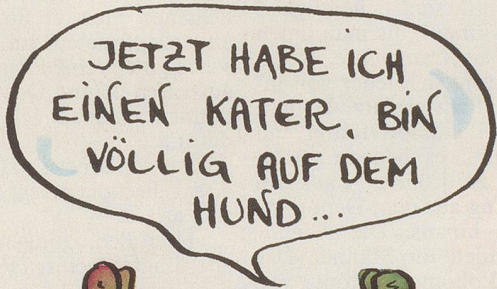 JETZT HABE iCH
EiNEN KATER, BiN
VÖLLiG AUF DEM
HUND...